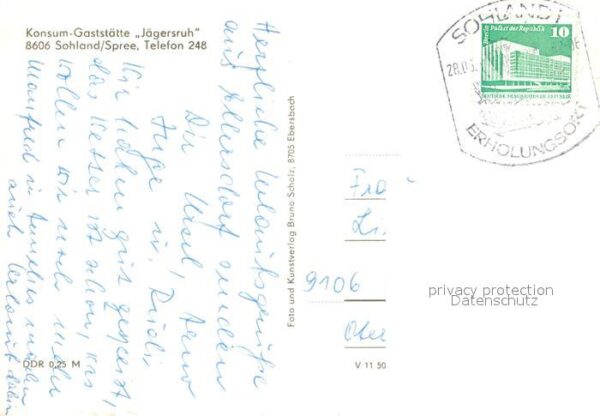 Konsum-Gaststätte „Jägersruh"
8606 Sohland/Spree, Telefon 248
Herzliche Urlaubsgrüße
aus Ebersdorf senden
Dir Ursel, Arno
Inge u. Rudi,
Wir sind gut gereist,
das Wetter ist schön, was
wollen wir noch mehr
Manfred u. Annelies machen
auch Urlaub
DDR 0,25 M
Foto und Kunstverlag Bruno Scholz, 8705 Ebersbach
V 11 50
SOHLAND
28.05.
ERHOLUNGSORT
Berlin, Palast der Republik
10
DEUTSCHE DEMOKRATISCHE REPUBLIK
Fra
Li
9106
Ober
privacy protection
Datenschutz